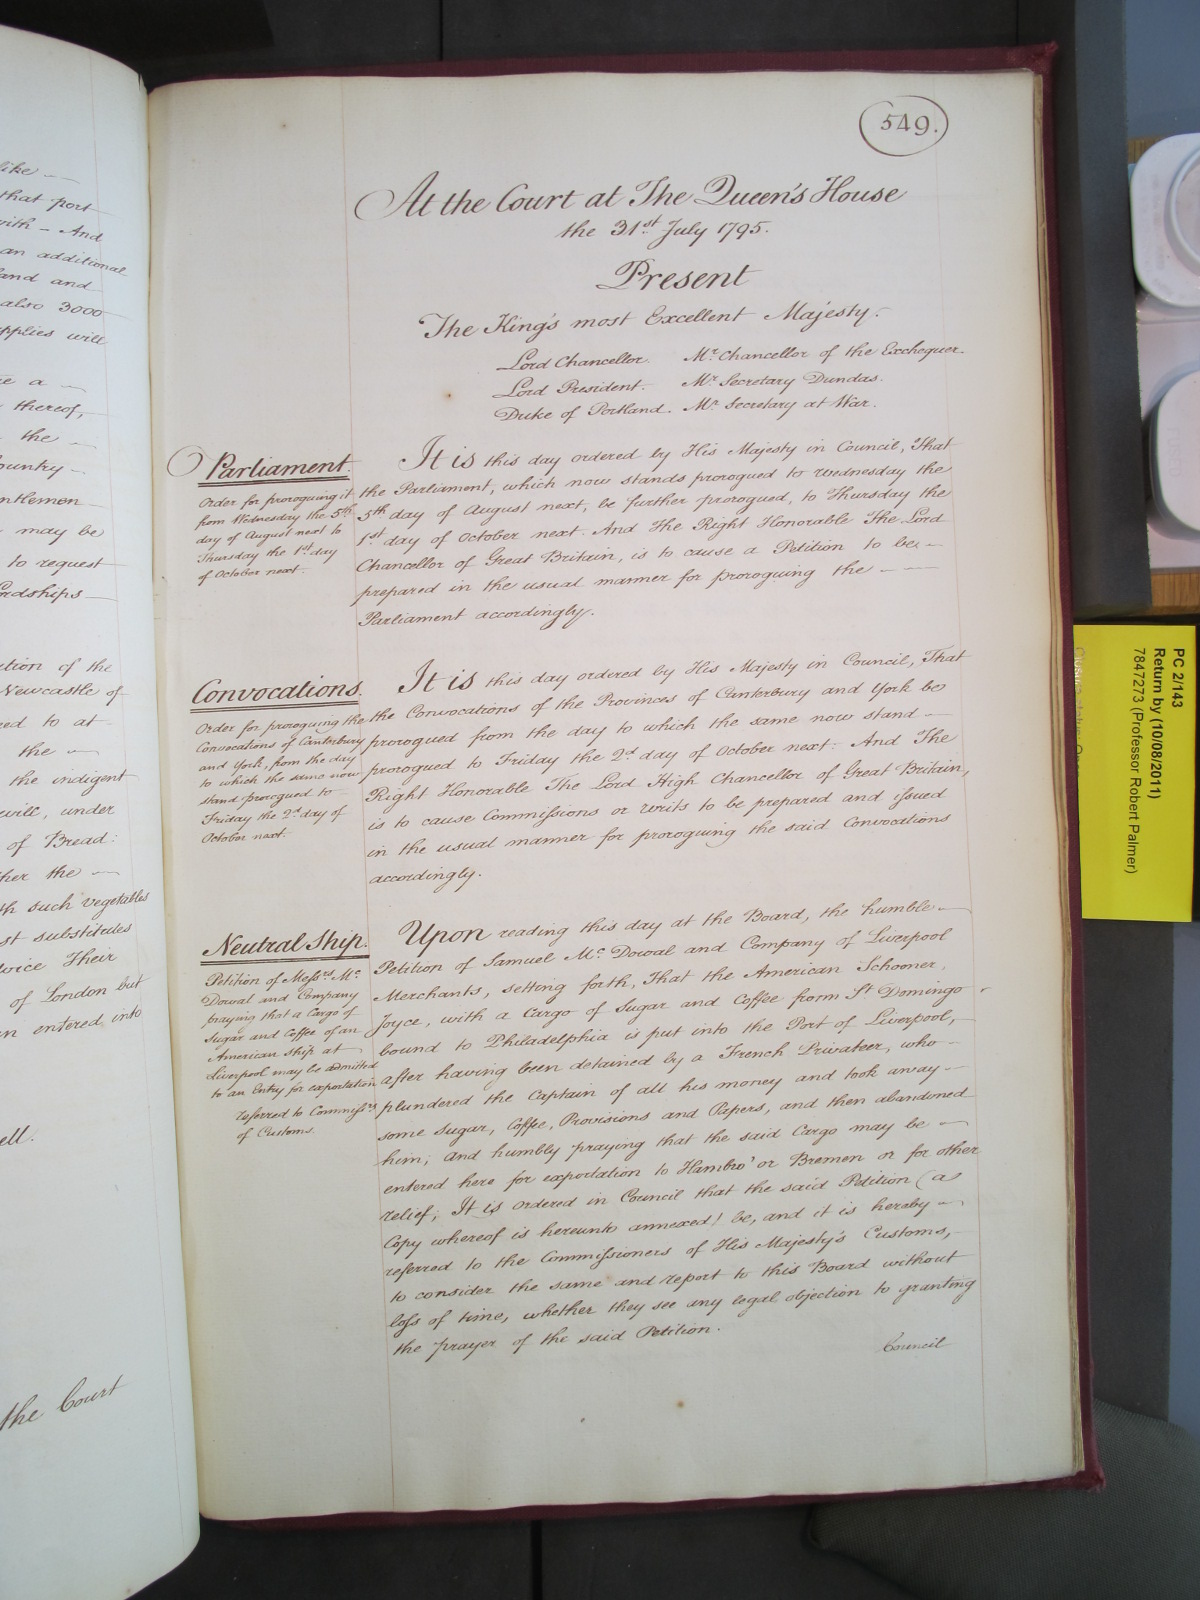 like
that port
with - And
an additional
and and
also 3000
supplies will
a
thereof,
the
ountry
ntlemen
may be
to request
ordships
ition of the
Newcastle of
ed to at
the
the indigent
will, under
of Bread:
her the
th such vegetables
st substitutes
dvice Their
of London but
n entered into
ell.
the Court
549.
At the Court at The Queen's House
the 31st July 1795.
Present
The King's most Excellent Majesty.
Lord Chancellor. Mr Chancellor of the Exchequer.
Lord President. Mr Secretary Dundas.
Duke of Portland. Mr Secretary at War.
Parliament.
Order for proroguing it
from Wednesday the 5th
day of August next to
Thursday the 1st day
of October next.
It is this day ordered by His Majesty in Council, That
the Parliament, which now stands prorogued to Wednesday the
5th day of August next, be further prorogued, to Thursday the
1st day of October next. And The Right Honorable The Lord
Chancellor of Great Britain, is to cause a Petition to be
prepared in the usual manner for proroguing the
Parliament accordingly.
Convocations.
Order for proroguing the
Convocations of Canterbury
and York, from the day
to which the same now
stand prorogued to
Friday the 2d day of
October next.
It is this day ordered by His Majesty in Council, That
the Convocations of the Provinces of Canterbury and York be
prorogued from the day to which the same now stand
prorogued to Friday the 2d day of October next. And The
Right Honorable The Lord High Chancellor of Great Britain,
is to cause Commissions or writs to be prepared and issued
in the usual manner for proroguing the said Convocations
accordingly.
Neutral Ship.
Petition of Messrs Mc
Dowal and Company
praying that a Cargo of
Sugar and Coffee of an
American Ship at
Liverpool may be admitted
to an Entry for exportation
referred to Commissrs
of Customs.
Upon reading this day at the Board, the humble
Petition of Samuel Mc Dowal and Company of Liverpool
Merchants, setting forth, That the American Schooner,
Joyce, with a Cargo of Sugar and Coffee from St Domingo
bound to Philadelphia is put into the Port of Liverpool,
after having been detained by a French Privateer, who
plundered the Captain of all his money and took away
some Sugar, Coffee, Provisions and Papers, and then abandoned
him; And humbly praying that the said Cargo may be
entered here for exportation to Hambro' or Bremen or for other
relief; It is ordered in Council that the said Petition (a
Copy whereof is hereunto annexed) be, and it is hereby
referred to the Commissioners of His Majesty's Customs,
to consider the same and report to this Board without
loss of time, whether they see any legal objection to granting
the prayer of the said Petition.
Council
PC 2/143
Return by (10/08/2011)
7847273 (Professor Robert Palmer)